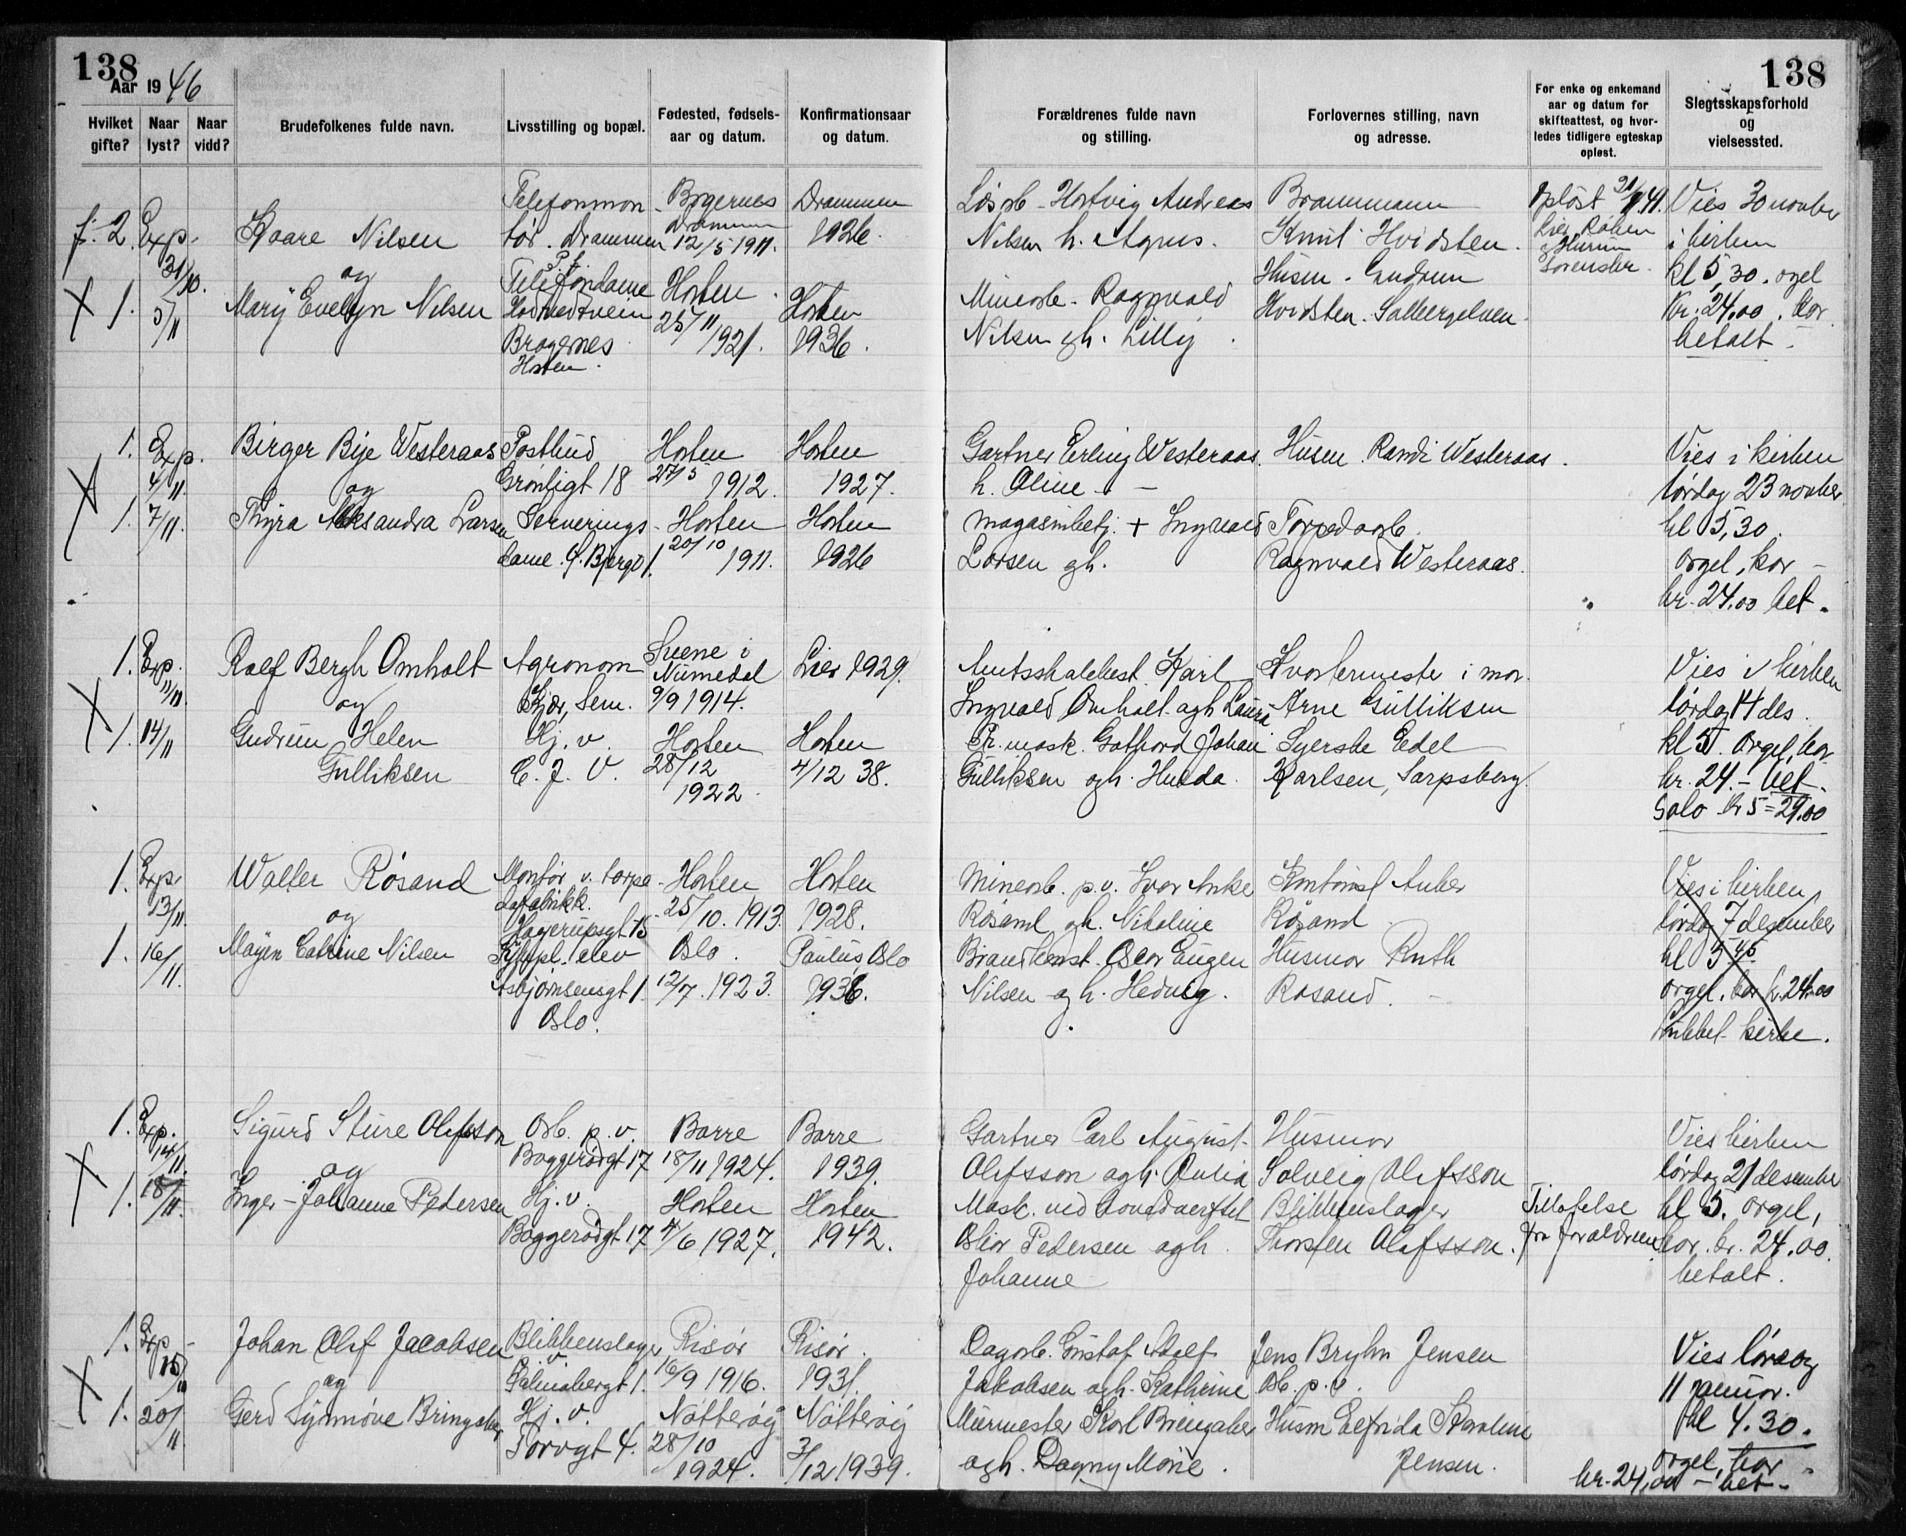 138
Aar 1946
Hvilket gifte?
Naar lyst?
Naar vidd?
Brudefolkenes fulde navn.
Livsstilling og bopæl.
Fødested, fødsels-
aar og datum.
Konfirmationsaar
og datum.
f. 2.
Exp.
31/10.
Kaare Nilsen
og
Telefonmon-
tør. Drammen
Bragernes
Drammen
12/5 1911.
Drammen
1926.
X 1.
5/11
Mary Evelyn Nilsen
Telefondame
Bragernes
Horten.
Horten
25/11
1921.
Horten
1936.
1.
Exp.
4/11.
Birger Bye Westeraas
og
Postbud
Grønligt 18
Horten
27/5 1912.
Horten
1927.
X
1.
7/11.
Thyra Aleksandra Larsen
Serverings-
dame.
Horten
20/10 1911.
Horten
1926
1.
Exp.
11/11
Rolf Bergh Omholt
og
Agronom
Kjær, Sem.
Svene i
Numedal
9/9 1914.
Lier 1929.
X
1.
14/11
Gudrun Helen
Gulliksen
Hj. v.
C. J. V.
Horten
28/12
1922
Horten
4/12 38.
1.
Exp
13/11.
Walter Røsand
og
Montør v. torpe-
dofabrikk.
Hagerupsgt 15
Horten
25/10. 1913.
Horten
1928.
1.
16/11.
Mayen Catrine Nilsen
Sykepl. elev
Asbjørnsensgt 1.
Oslo.
Oslo.
12/7. 1923.
Paulus, Oslo
1938.
1.
Exp.
14/11.
Sigurd Sture Olofsson
og
Arb. p. v.
Baggerødgt 17
Borre
18/11 1924.
Borre
1939.
X
1.
18/11.
Inger-Johanne Pedersen
Hj. v.
Baggerødgt 17
Horten
4/6 1927.
Horten
1942.
1.
Exp
15/11
Johan Olaf Jacobsen
og
Blikkenslager
Risør
16/9 1916.
Risør.
1931.
X
1.
20/11
Gerd Synnøve Bringaker
Hj. v.
Torvgt 4.
Nøtterøy
28/10
1924.
Nøtterøy
3/12 1939.
138
Forældrenes fulde navn
og stilling.
Forlovernes stilling, navn
og adresse.
For enke og enkemand
aar og datum for
skifteattest, og hvor-
ledes tidligere egteskap
opløst.
Slegtsskapsforhold
og
vielsessted.
Løsarb. Hartvig Andreas
Nilsen h. Agnes.
Brannmann
Knut Hvidsten.
Opløst
Vies 30 novber
i kirken
Minearb. Ragnvald
Nilsen gh. Lilly.
Husm. Gudrun
Hvidsten.
kl 5,30. orgel
kr. 24,00. kor.
betalt.
Gartner Erling Westeraas.
h. Aline
Husm. Randi Westeraas.
Vies i kirken
lørdag 23 novber
Magasinbetj. + Ingvald
Larsen gh.
Torpedoarb.
Ragnvald Westeraas.
kl 5,30.
orgel, kor -
kr. 24,00 bet.
Amtsskolebest. Karl
Ingvald Omholt agh Laura
Kvartermester i mar.
Arne Gulliksen
Vies i kirken
lørdag 14 des.
Gothard Johan
Gulliksen ogh. Hulda.
Syerske Edel
Karlsen, Sarpsberg.
kl 5. Orgel, kor
kr. 24.- bet.
Solo kr 5 = 29.00
Minearb. p.v. Ivar Anker
Røsand gh. Nikoline
Kontorist Anker
Røsand
Vies i kirken
lørdag 7 desember
Oscar Eugen
Nilsen ogh. Hedvig.
Husmor Ruth
Røsand.
kl 5 45.
orgel, kor kr. 24.00
kirke.
Gartner Carl August
Olofsson agh.
Husmor
Solveig Olofsson
Vies kirken
lørdag 21 desember
Mask. ved hovedverftet
Pedersen agh.
Johanne
Blikkenslager
Thorsten Olofsson.
Tillatelse
fra foreldrene
kl 5. orgel,
kor. kr. 24,00.
betalt.
Dagarb. Gustaf Adolf
Jakobsen agh. Kathrine
Jens Bryhn Jensen
arb. p. v.
Vies lørdag
11 januar.
Murmester Karl Bringaker
agh. Dagny Marie.
Husm Elfrida Karoline
Jensen.
kl 4.30.
orgel, kor
kr. 24,00 - bet.